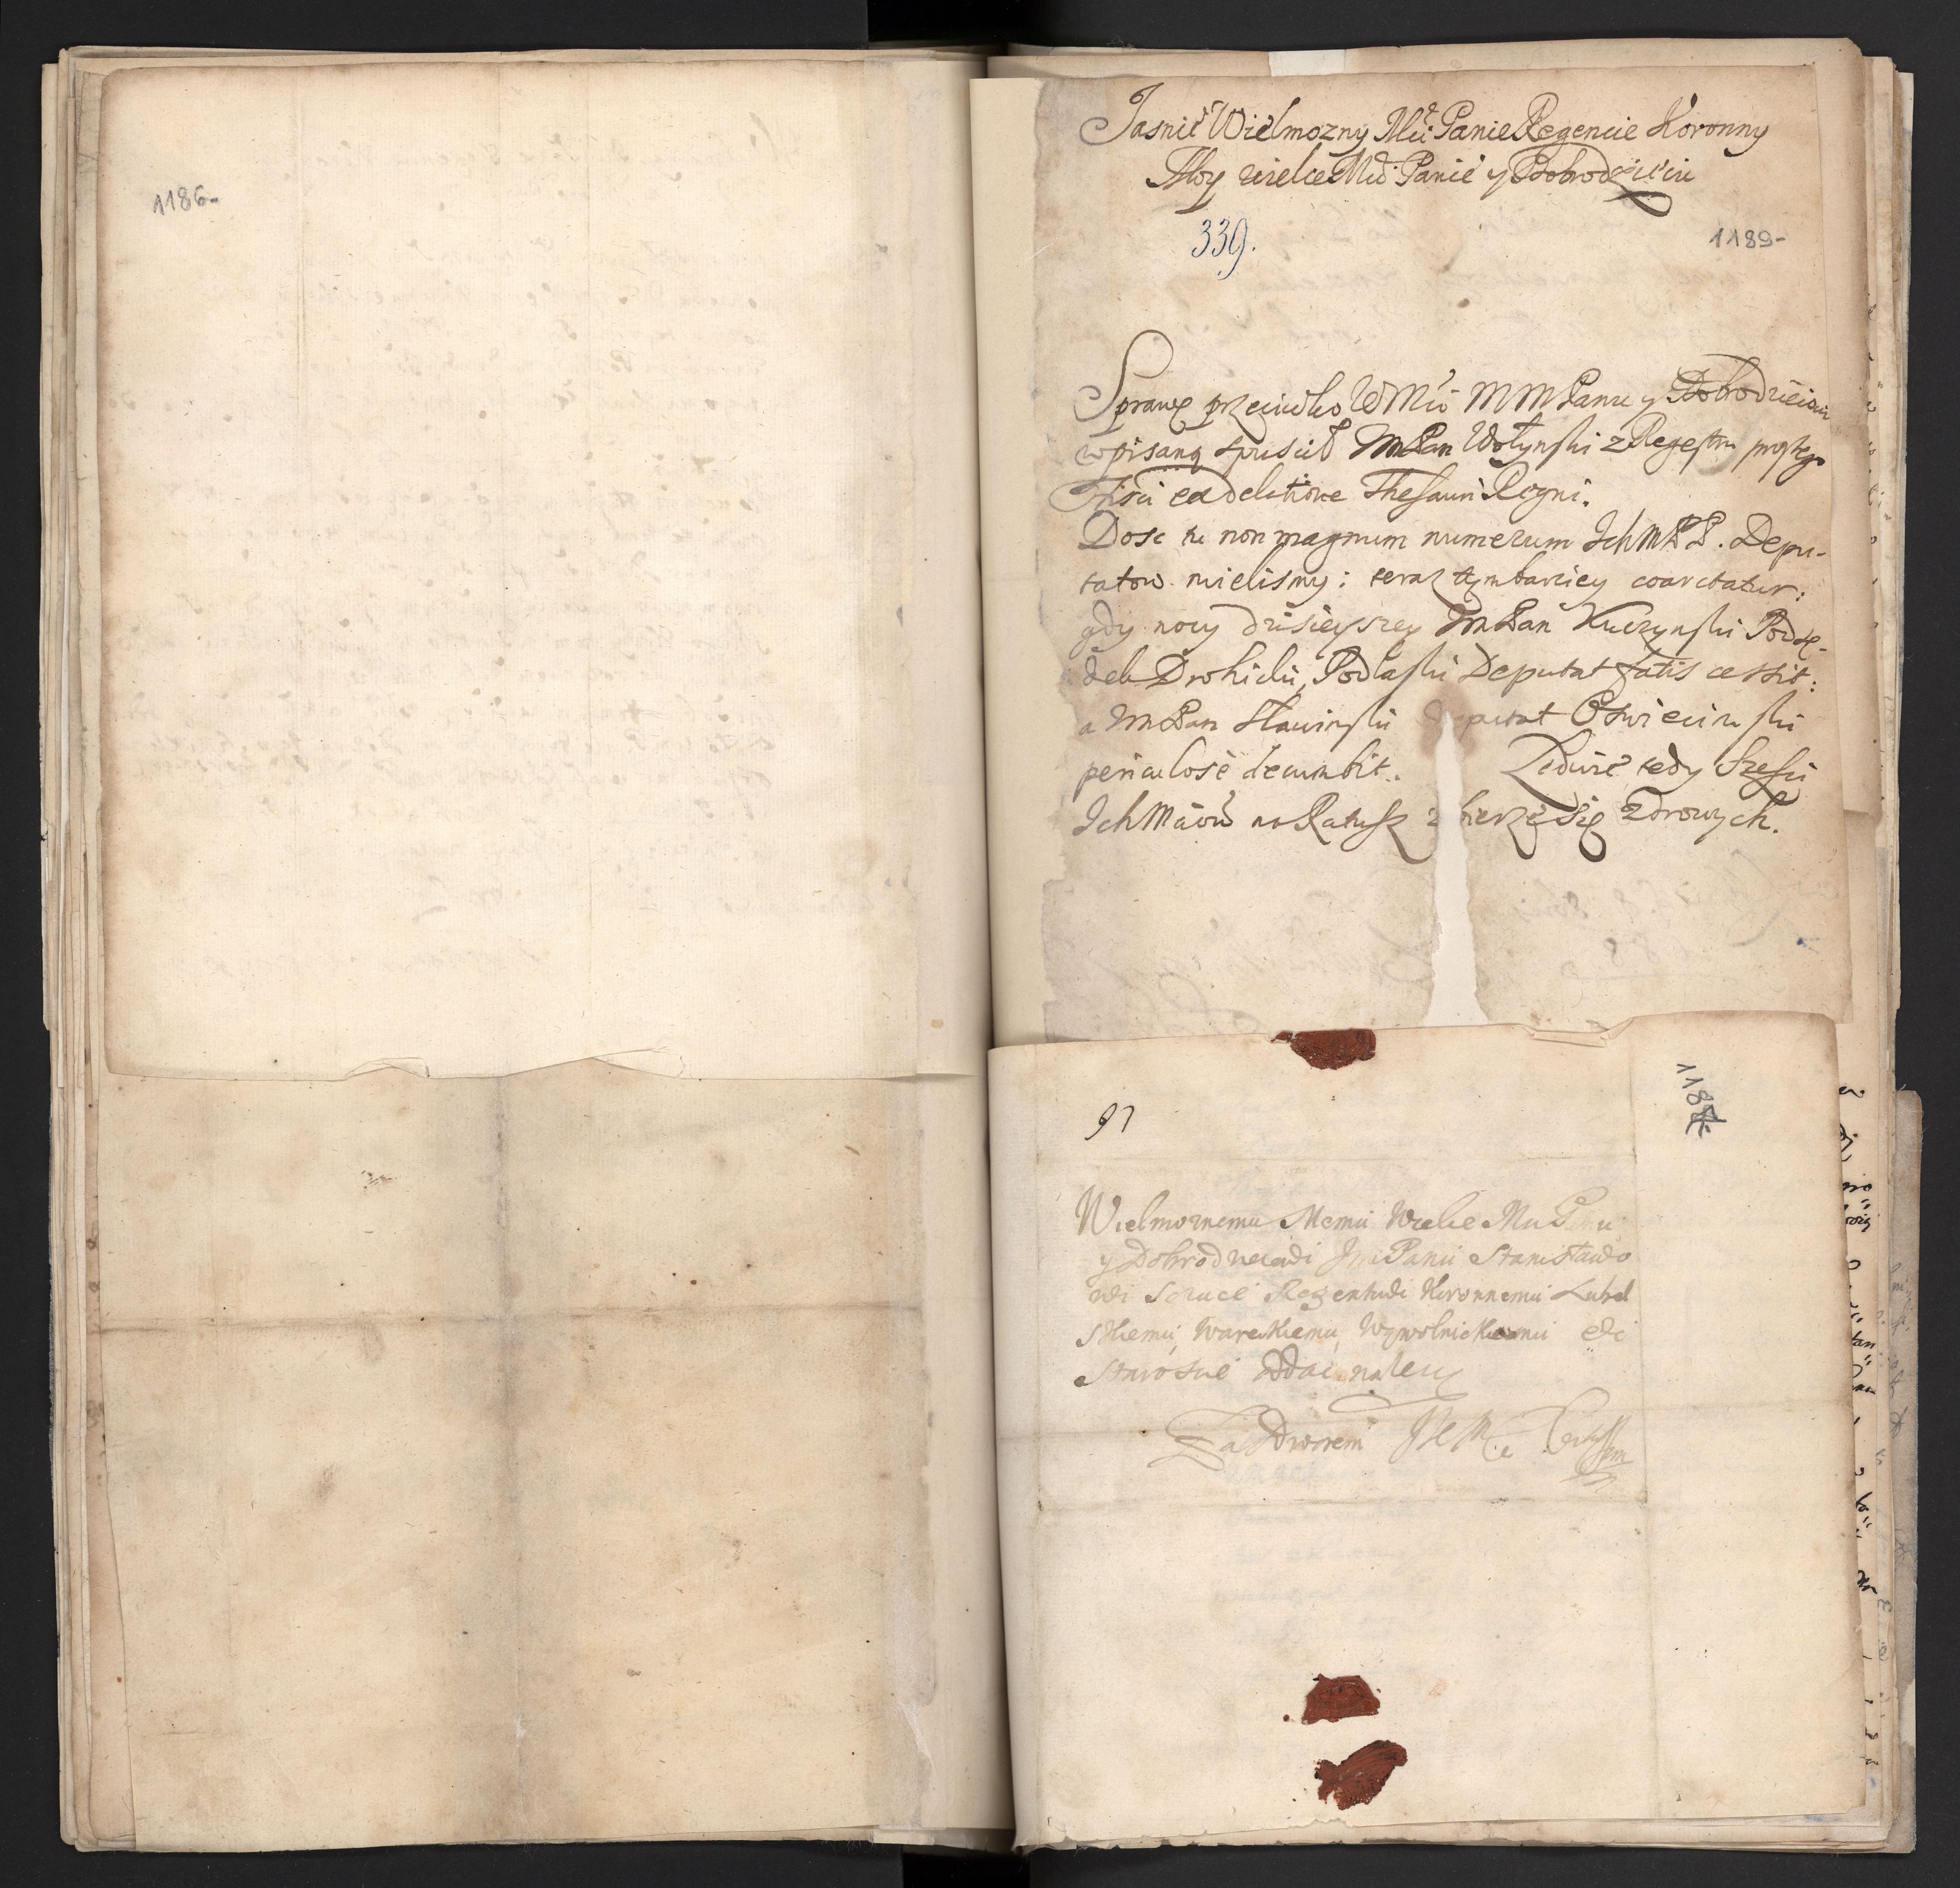 1186-
Jasnie Wielmozny Mći Panie Regencie Koronny
Moy wielce Mći Panie y Dobrodzieiu
339.
1189-
Sprawę przeciwko WMći MMPanu y Dobrodzieiowi
wpisaną spuscił ImPan Wołynski z Regestru
Fisci ex delatione Thesauri Regni.
Dosc tu non magnum numerum IchMPP. Depu-
tatow mielismy: teraz tymbarziey coarctatur:
gdy nocy dzisieyszey ImPan Kuczynski Podsę-
dek Drohicki, Podlaski Deputat fatis cessit:
a ImPan Sławinski Deputat Oswiecimski
periculose decumbit. Ledwie tedy Szesci
Ich Mciow na Ratusz zbierze się zdrowych.
1187-
91
Wielmoznemu Memu Wielce Mu Panu
y Dobrodzieiowi Jmi Panu Stanisławo
wi Szczuce Regentowi Koronnemu Lubel
skiemu, Wareckiemu, Wąwolnickiemu etc
Staroscie oddac nalezy
Za Dworem JKMci